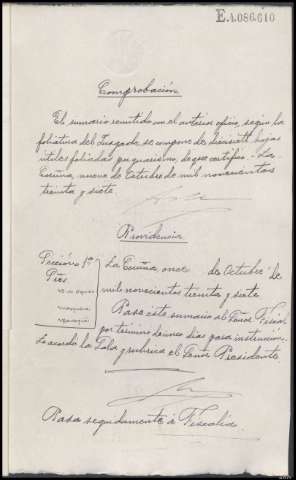 E.1.086.610
Comprobación
El sumario remitido con el anterior oficio, según la
foliatura del Juzgado, se compone de diecisiete hojas
útiles foliadas por guarismo, de que certifico. - La
Coruña, nueve de Octubre de mil novecientos
treinta y siete.
Providencia
Sección 1ª
Sres.
La Coruña once de Octubre de
mil novecientos treinta y siete
Pase este sumario al Señor Fiscal
por término de cinco días para instrucción.
Lo acordó la Sala y rubrica el Señor Presidente
Pasa seguidamente á Fiscalía.